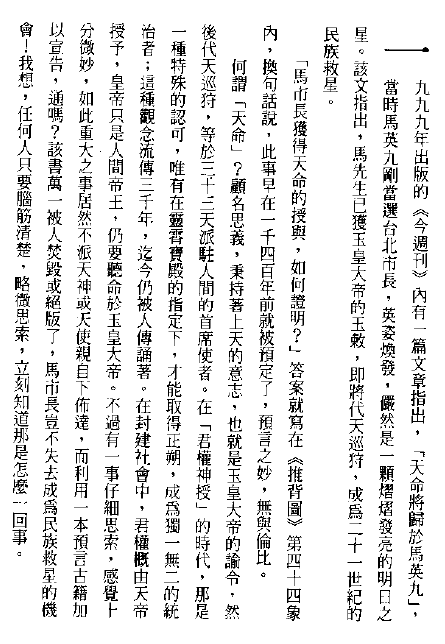 一九九九年出版的《今週刊》內有一篇文章指出，「天命將歸於馬英九」，
當時馬英九剛當選台北市長，英姿煥發，儼然是一顆熠熠發亮的明日之
星。該文指出，馬先生已獲玉皇大帝的玉敕，即將代天巡狩，成為二十一世紀的
民族救星。
「馬市長獲得天命的授與，如何證明？」答案就寫在《推背圖》第四十四象
內，換句話說，此事早在一千四百年前就被預定了，預言之妙，無與倫比。
何謂「天命」？顧名思義，秉持著上天的意志，也就是玉皇大帝的諭令，然
後代天巡狩，等於三十三天派駐人間的首席使者。在「君權神授」的時代，那是
一種特殊的認可，唯有在靈霄寶殿的指定下，才能取得正朔，成為獨一無二的統
治者；這種觀念流傳三千年，迄今仍被人傳誦著。在封建社會中，君權概由天帝
授予，皇帝只是人間帝王，仍要聽命於玉皇大帝。不過有一事仔細思索，感覺十
分微妙，如此重大之事居然不派天神或天使親自下佈達，而利用一本預言古籍加
以宣告，通嗎？該書萬一被人焚毀或絕版了，馬市長豈不失去成為民族救星的機
會！我想，任何人只要腦筋清楚，略微思索，立刻知道那是怎麼一回事。